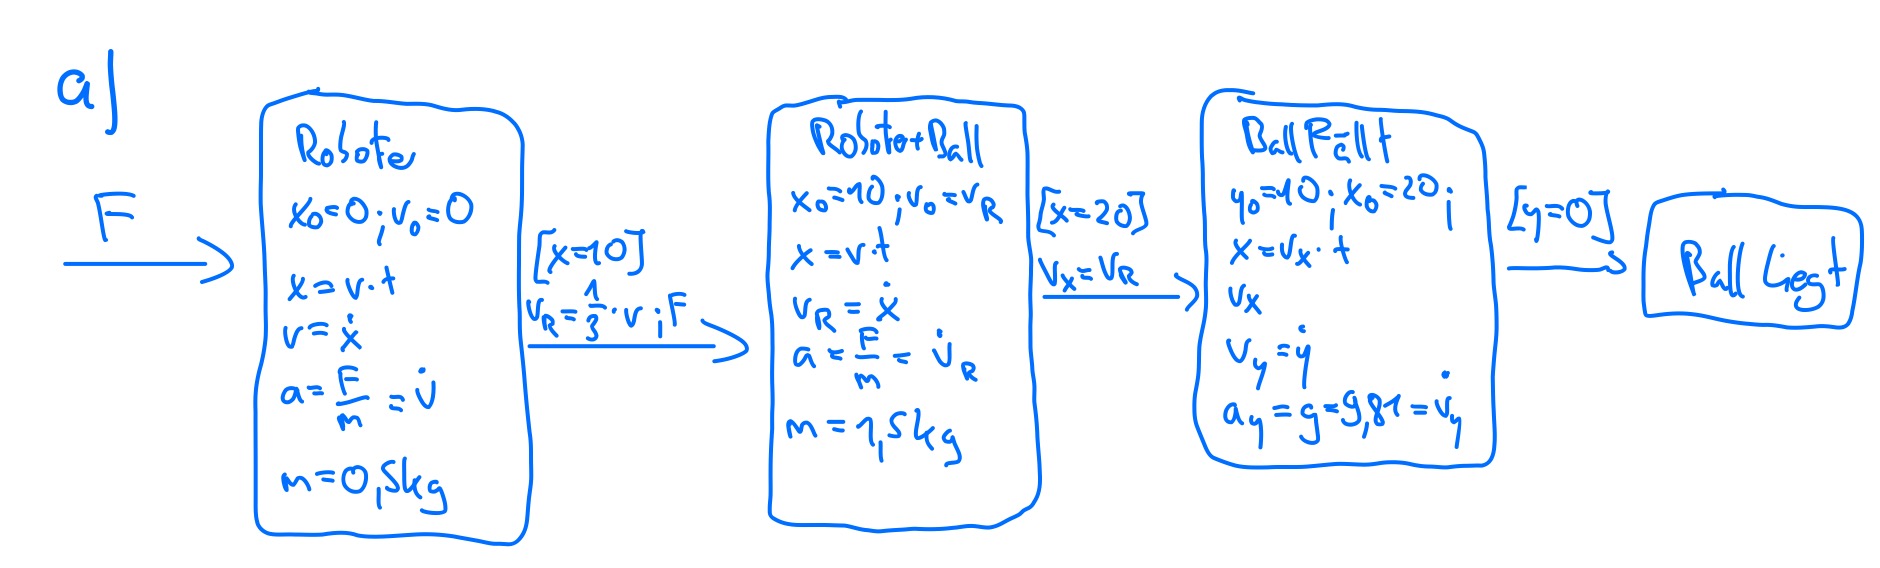 a)
F
Roboter
x₀=0 ; v₀=0
x = v·t
v = ẋ
a = F/m = v̇
m=0,5kg
[x=10]
v_R = 1/3 · v ; F
Roboter+Ball
x₀=10 ; v₀=v_R
x = v·t
v_R = ẋ
a = F/m = v̇_R
m = 1,5kg
[x=20]
v_x = v_R
Ball Fällt
y₀=10 ; x₀=20 ;
x = v_x · t
v_x
v_y = ẏ
a_y = g = 9,81 = v̇_y
[y=0]
Ball liegt